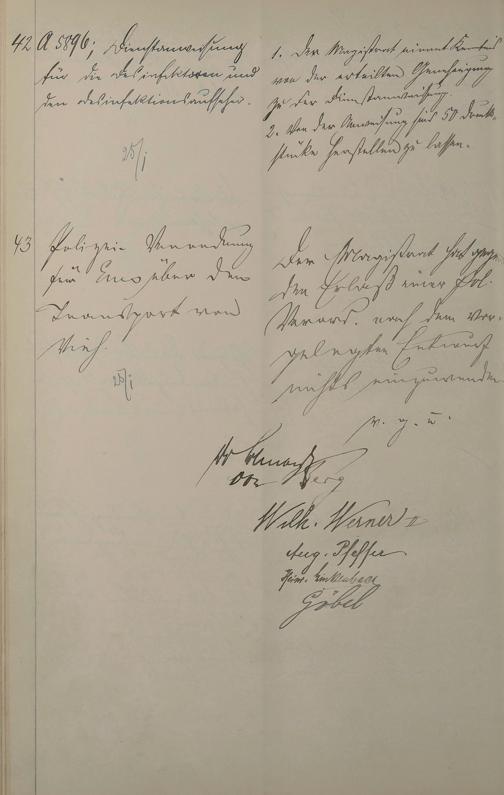 42 A 5896; Dienstanweisung
für die Desinfektoren und
den Desinfektionsaufseher.
25/I
1. Der Magistrat nimmt Kenntnis
von der erteilten Genehmigung
zu der Dienstanweisung.
2. Von der Anweisung sind 50 Druck-
stücke herstellen zu lassen.
43 Polizei-Verordnung
für Ems über den
Transport von
Vieh.
25/I
Der Magistrat hat gegen
den Erlaß einer Pol.
Verord. nach dem vor-
gelegten Entwurf
nichts einzuwenden.
v. g. u.
Berg
Wilh. Werner II
Aug. Pfeffer
Göbel